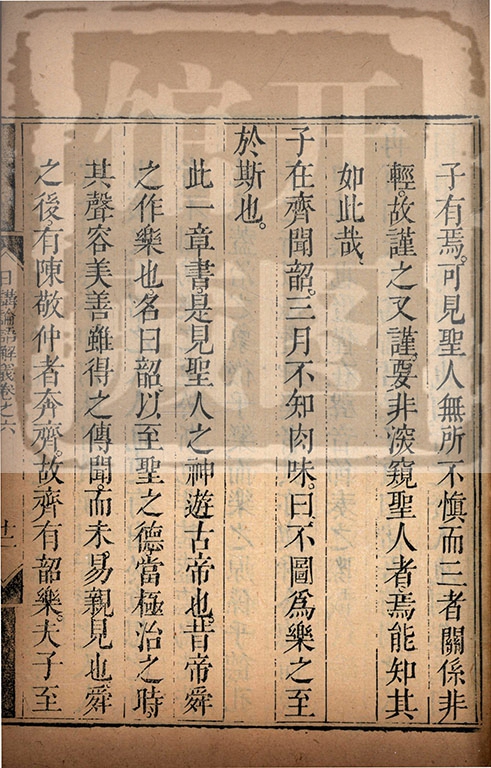 子有焉。可見聖人無所不慎而三者關係非
輕。故謹之又謹。要非深窺聖人者焉能知其
如此哉。
子在齊聞韶。三月不知肉味。曰。不圖為樂之至
於斯也。
此一章書。是見聖人之神遊古帝也。昔帝舜
之作樂也。名曰韶。以至聖之德。當極治之時。
其聲容美善。雖得之傳聞。而未易親見也。舜
之後。有陳敬仲者奔齊。故齊有韶樂。夫子至
日講論語解義卷之六